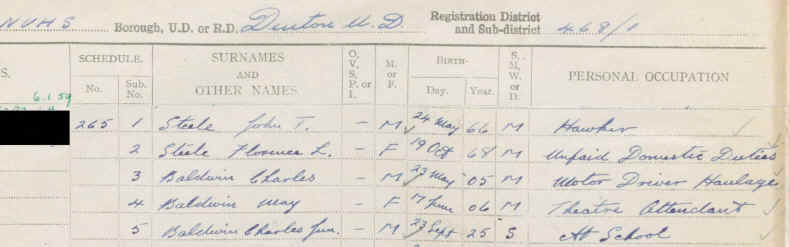 NVHS Borough, U.D. or R.D. Denton U.D. Registration District and Sub-district 468/1
S. SCHEDULE. No. Sub. No. SURNAMES AND OTHER NAMES O. V. S. P. or I. M. or F. BIRTH- Day. Year. S. M. W. or D. PERSONAL OCCUPATION
6.1.59
265 1 Steele John T. – M 24 May 66 M Hawker
2 Steele Florence L. – F 19 Oct 68 M Unpaid Domestic Duties
3 Baldwin Charles – M 23 May 05 M Motor Driver Haulage
4 Baldwin May – F 17 June 06 M Theatre Attendant
5 Baldwin Charles Jun. – M 23 Sept 25 S At School